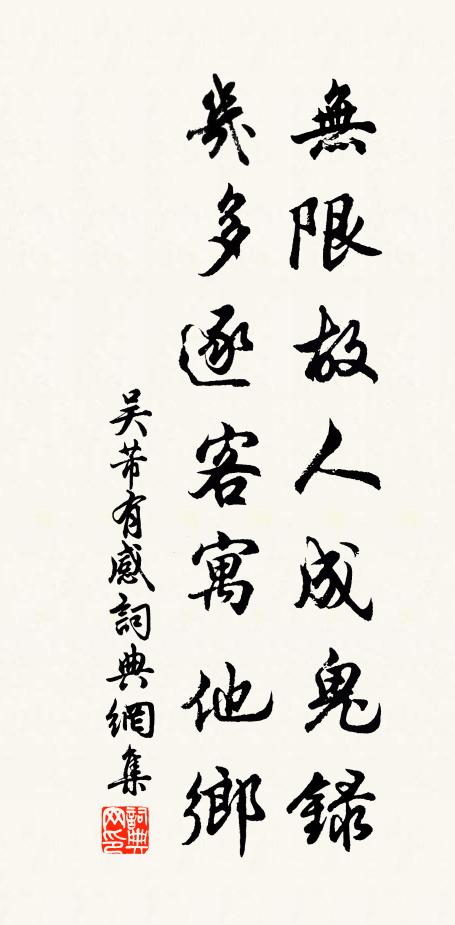 無限故人成鬼録
幾多逐客寓他鄉
吴芾有感詞典網集
詞典
网印